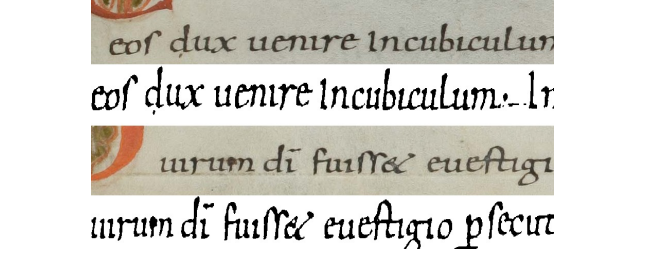 eoſ dux uenire Incubiculum
eoſ dux uenire Incubiculum:- In
uirum dī fuiſſe& eueſtigi
uirum dī fuiſſe& eueſtigio ꝑſecut